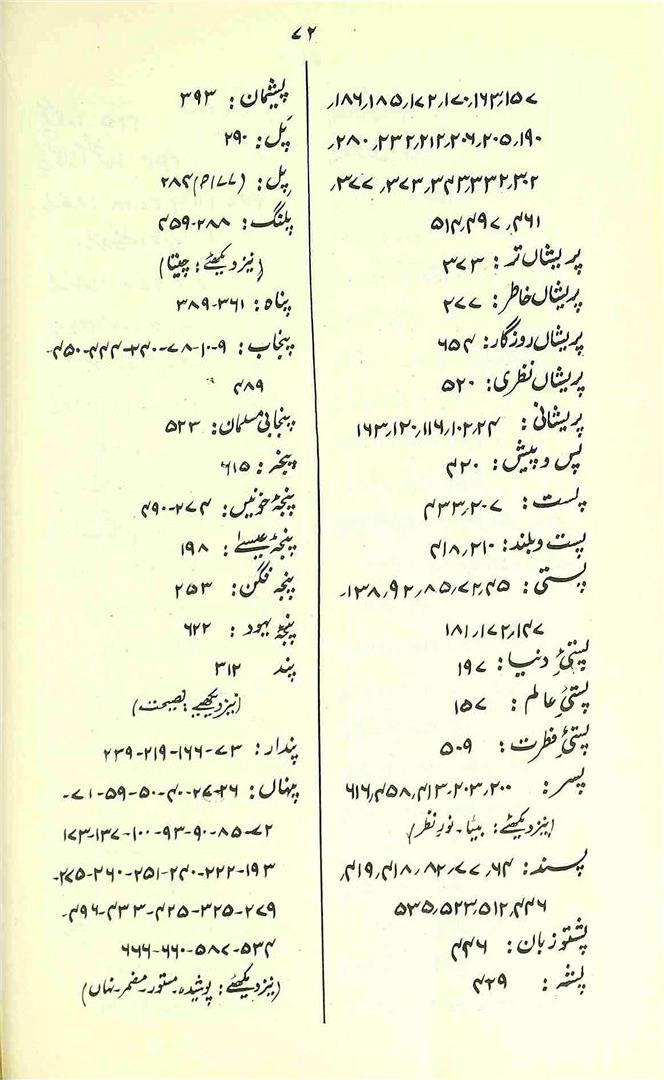 ۷۲
۱۵۷٬۱۶۳٬۱۷۰٬۱۷۲٬۱۸۵٬۱۸۶٬
۱۹۰٬۲۰۵٬۲۰۶٬۲۱۲٬۲۳۲٬۲۸۰٬
۳۰۲٬۳۳۲٬۳۴۳٬۳۷۳٬۳۷۷٬
۴۶۱٬۴۹۷٬۵۱۴
پریشاں تر: ۳۷۳
پریشاں خاطر: ۲۷۷
پریشاں روزگار: ۶۵۴
پریشاں نظری: ۵۲۰
پریشانی: ۲۴٬۱۰۲٬۱۱۶٬۱۲۰٬۱۶۳
پس و پیش: ۴۲۰
پست: ۲۰۷٬۴۳۳
پست و بلند: ۲۱۰٬۴۱۸
پستی: ۴۵٬۷۲٬۸۵٬۹۲٬۱۳۸٬
۱۴۷٬۱۷۲٬۱۸۱
پستیٔ دنیا: ۱۹۷
پستیٔ عالم: ۱۵۷
پستیٔ فطرت: ۵۰۹
پسر: ۲۰۰٬۲۰۳٬۴۱۳٬۴۵۸٬۶۱۶
(نیز دیکھئے: بیٹا۔ نورِ نظر)
پسند: ۶۴٬۷۷٬۸۲٬۴۱۸٬۴۱۹٬
۴۴۶٬۵۱۲٬۵۲۳٬۵۳۵
پشتو زبان: ۴۴۶
پشہ: ۴۲۹
پشیمان: ۳۹۳
پَل: ۲۹۰
پِل: (۱۷۷م) ۲۸۴
پلنگ: ۲۸۸-۴۵۹
(نیز دیکھئے: چیتا)
پناہ: ۳۶۱-۳۸۹
پنجاب: ۹-۱۰-۷۸-۲۴۰-۴۴۴-۴۵۰-
۴۸۹
پنجابی مسلمان: ۵۲۳
پنجر: ۶۱۵
پنجۂ خونیں: ۲۷۴-۴۹۰
پنجۂ عیسےٰ: ۱۹۸
پنجہ فگن: ۲۵۳
پنجۂ یہود: ۶۲۲
پند ۳۱۲
(نیز دیکھیے: نصیحت)
پندار: ۷۳-۱۶۶-۲۱۹-۲۳۹
پنہاں: ۲۶-۲۷-۴۰-۵۰-۵۹-۷۱-
۷۲-۸۵-۹۰-۹۳-۱۰۰-۱۳۷-۱۷۳
۱۹۳-۲۲۲-۲۴۰-۲۵۱-۲۶۰-۲۷۵-
۲۷۹-۳۲۵-۴۲۵-۴۳۳-۴۹۶-
۵۳۴-۵۸۷-۶۶۰-۶۶۶
(نیز دیکھئے: پوشیدہ۔ مستور۔ مضمر۔ نہاں)